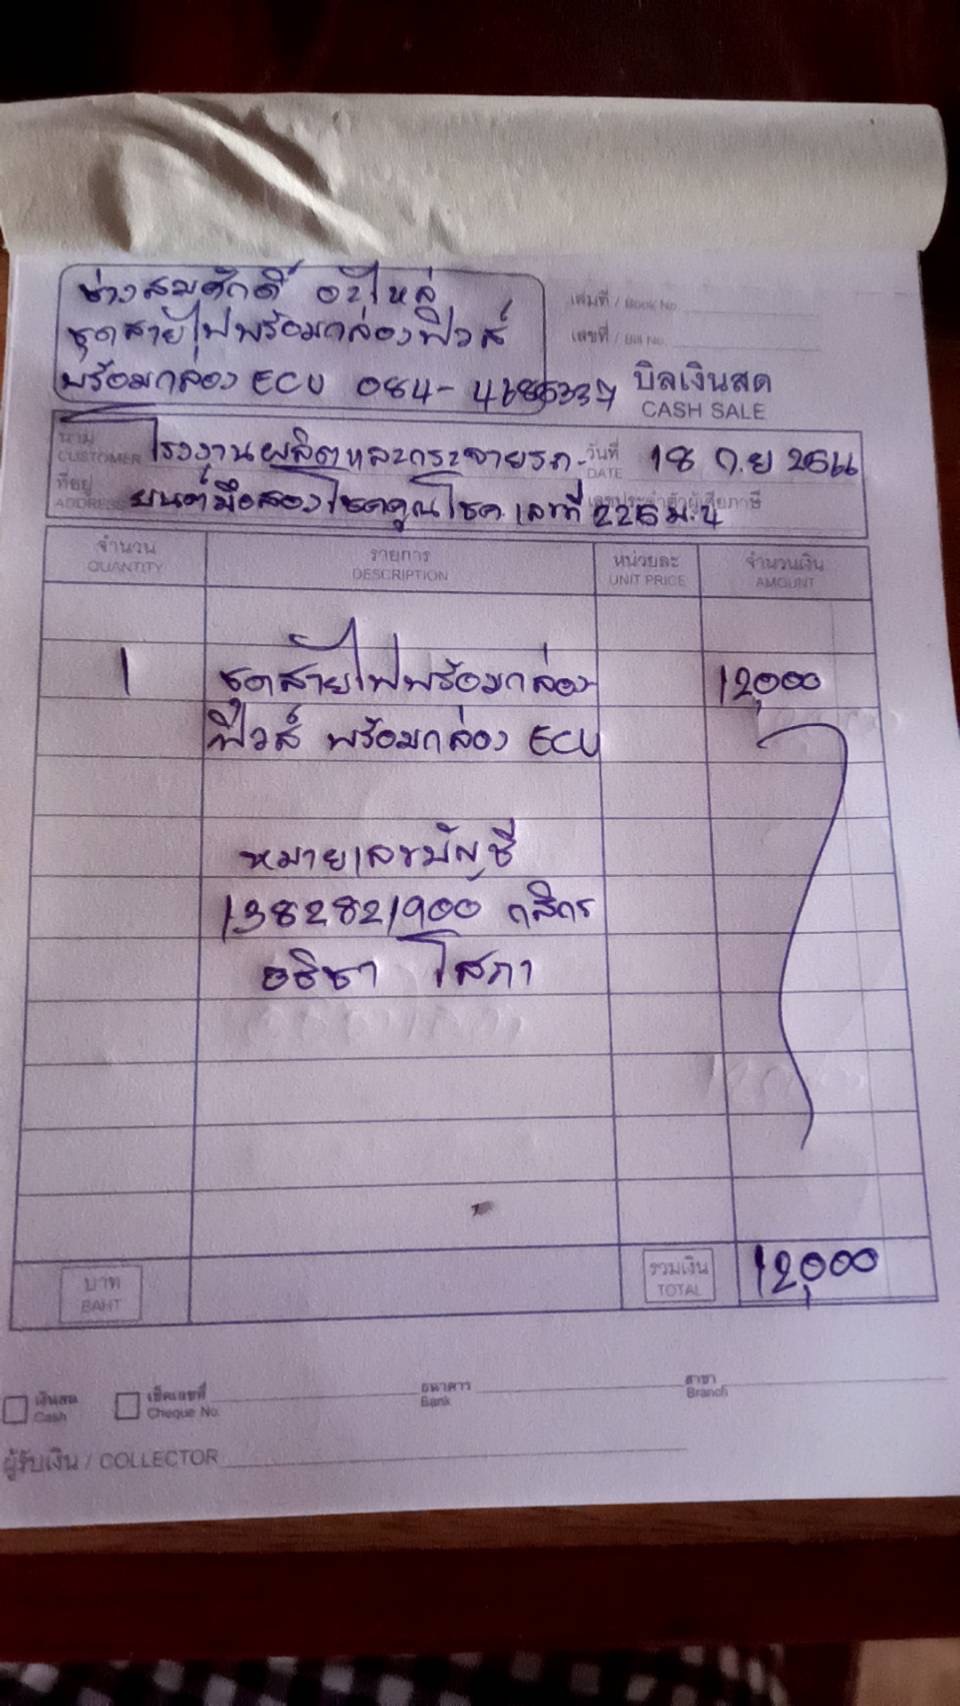 ช่างสมศักดิ์ อะไหล่
ชุดสายไฟพร้อมกล่องฟิวส์
พร้อมกล่อง ECU 084-
เล่มที่ / Book No.
เลขที่ / Bill No.
บิลเงินสด
CASH SALE
นาม โรงงานผลิตและกระจายรถ- วันที่ 18 ก.ย 25
CUSTOMER DATE
ที่อยู่ ยนต์มือสองโชคคูณโชค เลขที่ 226 ม.4 เลขประจำตัวผู้เสียภาษี
ADDRESS
จำนวน รายการ หน่วยละ จำนวนเงิน
QUANTITY DESCRIPTION UNIT PRICE AMOUNT
1 ชุดสายไฟพร้อมกล่อง 12,000
ฟิวส์ พร้อมกล่อง ECU
หมายเลขบัญชี
1382821900 กสิกร
อธิชา โสภา
บาท รวมเงิน 12,000
BAHT TOTAL
เงินสด เช็คเลขที่ ธนาคาร สาขา
Cash Cheque No. Bank Branch
ผู้รับเงิน / COLLECTOR